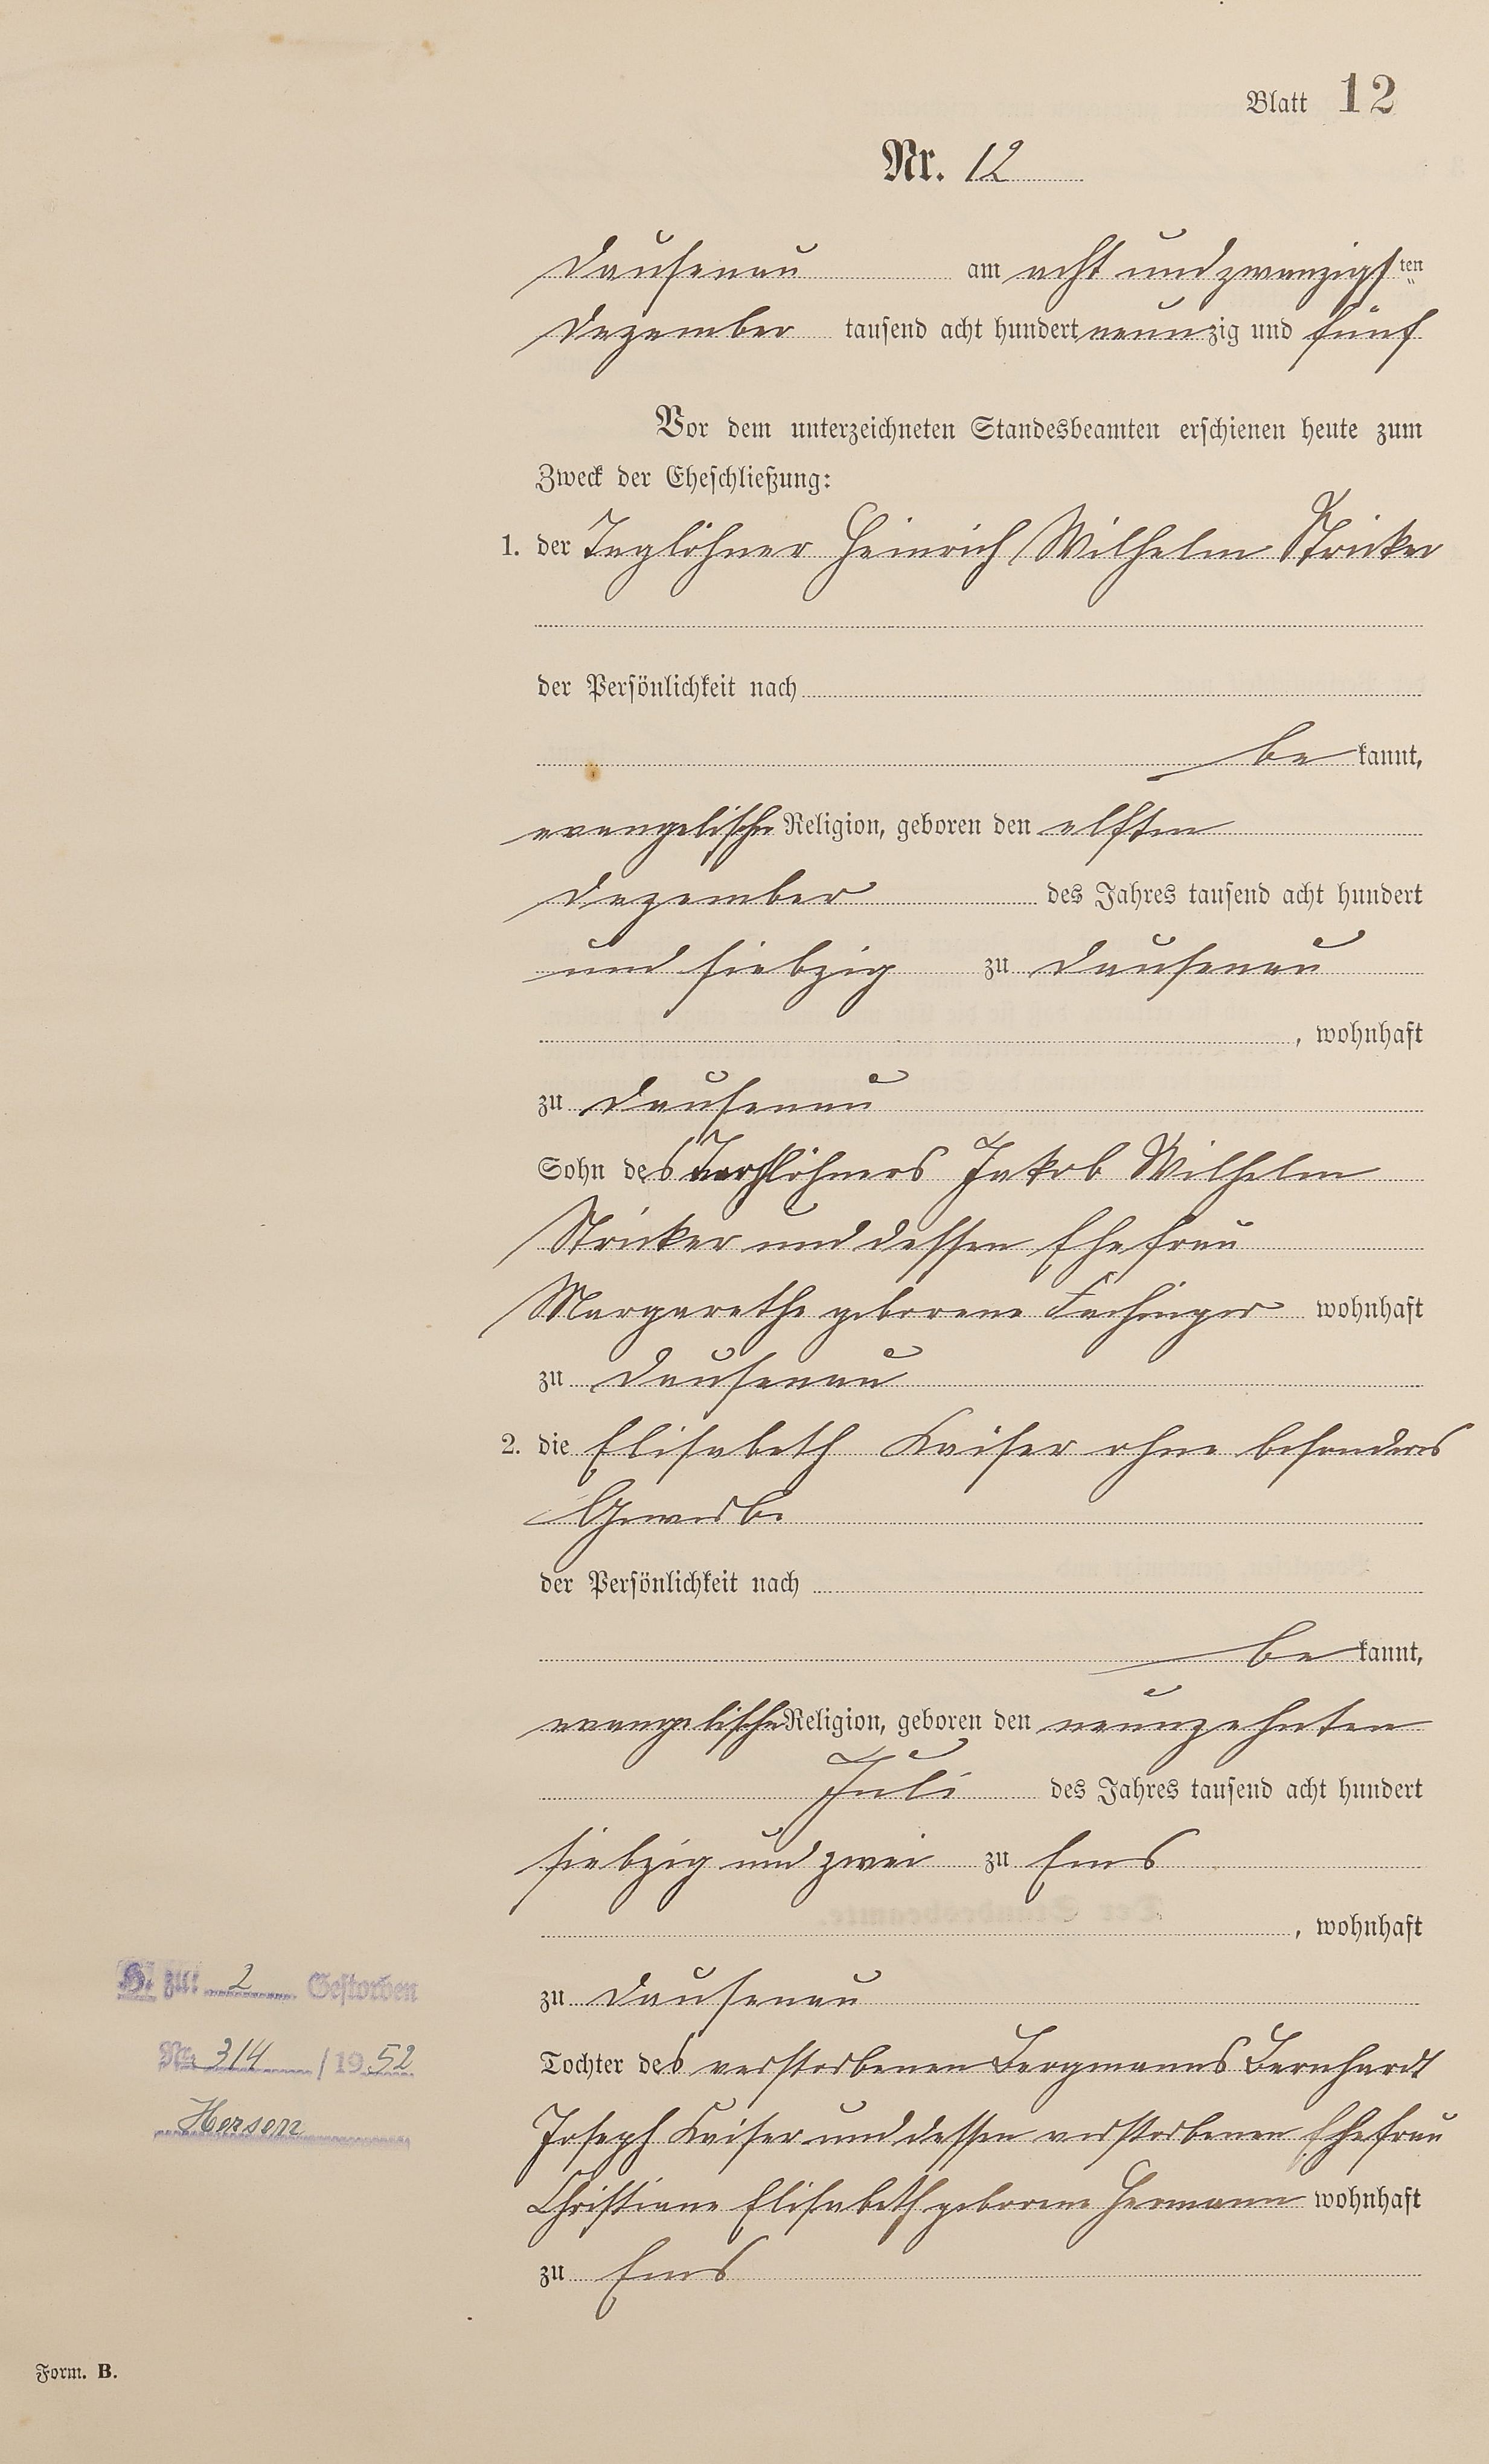 Blatt 12
Nr. 12
Dausenau am acht und zwanzigsten
Dezember tausend acht hundert neunzig und fünf
Vor dem unterzeichneten Standesbeamten erschienen heute zum
Zweck der Eheschließung:
1. der Taglöhner Heinrich Wilhelm Stricker
der Persönlichkeit nach
be kannt,
evangelischer Religion, geboren den elften
Dezember des Jahres tausend acht hundert
und siebzig zu Dausenau
, wohnhaft
zu Dausenau
Sohn des Taglöhners Jakob Wilhelm
Stricker und dessen Ehefrau
Margarethe geborene Fachinger wohnhaft
zu Dausenau
2. die Elisabeth Kaiser ohne besonderes
Gewerbe
der Persönlichkeit nach
be kannt,
evangelischer Religion, geboren den neunzehnten
Juli des Jahres tausend acht hundert
siebzig und zwei zu Ems
, wohnhaft
zu Dausenau
H. zu: 2 Gestorben
Nr. 314 / 1952
Tochter des verstorbenen Bergmanns Bernhardt
Joseph Kaiser und dessen verstorbenen Ehefrau
Christiane Elisabeth geborene Hermann wohnhaft
zu Ems
Form. B.